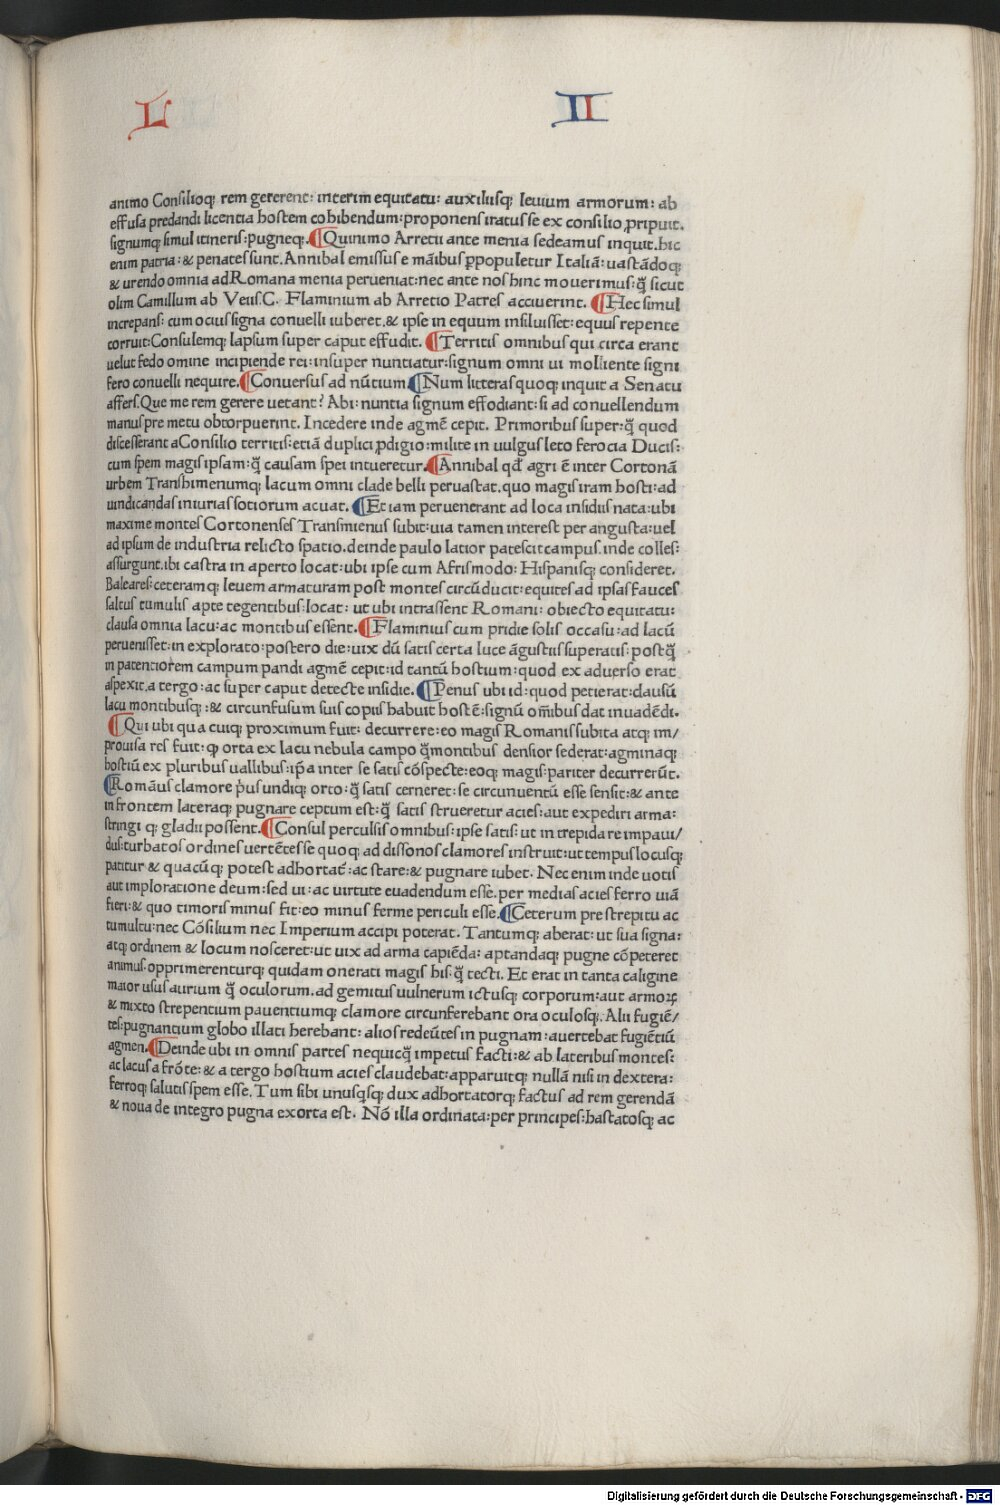 L II
animo Consilioq; rem gererent: interim equitatu: auxiliisq; leuium armorum: ab
effusa predandi licentia hostem cohibendum: proponens iratus se ex consilio ꝓripuit.
signumq; simul itineris: pugneq;. ¶Quinimo Arretii ante menia sedeamus inquit. hic
enim patria: & penates sunt. Annibal emissus e mãibus ꝑpopuletur Italiã: uastãdoq;
& urendo omnia ad Romana menia perueniat: nec ante nos hinc mouerimus: q̃ sicut
olim Camillum ab Veiis. C. Flaminium ab Arretio Patres acciuerint. ¶Hec simul
increpans: cum ocius signa conuelli iuberet. & ipse in equum insiluisset: equus repente
corruit: Consulemq; lapsum super caput effudit. ¶Territis omnibus qui circa erant
uelut fedo omine incipiende rei: insuper nuntiatur: signum omni ui moliente signi
fero conuelli nequire. ¶Conuersus ad nũtium ¶Num litteras quoq; inquit a Senatu
affers. Que me rem gerere uetant? Abi: nuntia signum effodiant: si ad conuellendum
manus pre metu obtorpuerint. Incedere inde agmẽ cepit. Primoribus super: q̃ quod
discesserant a Consilio territis: etiã duplici ꝓdigio: milite in uulgus leto ferocia Ducis:
cum spem magis ipsam: q̃ causam spei intueretur. ¶Annibal qd̃ agri ẽ inter Cortonã
urbem Transhimenumq; lacum omni clade belli peruastat. quo magis iram hosti: ad
uindicandas iniurias sotiorum acuat. ¶Et iam peruenerant ad loca insidiis nata: ubi
maxime montes Cortonenses Transmienus subit: uia tamen interest per angusta: uel
ad ipsum de industria relicto spatio. deinde paulo latior patescit campus. inde colles:
assurgunt. ibi castra in aperto locat: ubi ipse cum Afris modo: Hispanisq; consideret.
Baleares: ceteramq; leuem armaturam post montes circũducit: equites ad ipsas fauces
saltus tumulis apte tegentibus: locat: ut ubi intrassent Romani: obiecto equitatu:
clausa omnia lacu: ac montibus essent. ¶Flaminius cum pridie solis occasu: ad lacũ
peruenisset: in explorato: postero die: uix dũ satis certa luce ãgustiis superatis: postq̃
in patentiorem campum pandi agmẽ cepit: id tantũ hostium: quod ex aduerso erat
aspexit. a tergo: ac super caput detecte insidie. ¶Penus ubi id: quod petierat: clausũ
lacu montibusq; : & circunfusum suis copiis habuit hostẽ: signũ om̃ibus dat inuadẽdi.
¶Qui ubi qua cuiq; proximum fuit: decurrere: eo magis Romanis subita atq; im/
prouisa res fuit: ꝙ orta ex lacu nebula campo q̃ montibus densior sederat: agminaq;
hostiũ ex pluribus uallibus: ip̃a inter se satis cõspecte: eoq; magis: pariter decurrerũt.
¶Romãus clamore p̃us undiq; orto: q̃ satis cerneret: se circunuentũ esse sensit: & ante
in frontem lateraq; pugnare ceptum est: q̃ satis strueretur acies: aut expediri arma:
stringi q; gladii possent. ¶Consul perculsis omnibus: ipse satis: ut in trepida re impaui/
dus: turbatos ordines uertẽtes se quoq; ad dissonos clamores instruit: ut tempus locusq;
patitur & quacũq; potest adhortat̃: ac stare: & pugnare iubet. Nec enim inde uotis
aut imploratione deum: sed ui: ac uirtute euadendum esse. per medias acies ferro uiã
fieri: & quo timoris minus fit: eo minus ferme periculi esse. ¶Ceterum pre strepitu ac
tumultu: nec Cõsilium nec Imperium accipi poterat. Tantumq; aberat: ut sua signa:
atq; ordinem & locum nosceret: ut uix ad arma capiẽda: aptandaq; pugne cõpeteret
animus. opprimerenturq; quidam onerati magis his: q̃ tecti. Et erat in tanta caligine
maior usus aurium q̃ oculorum. ad gemitus uulnerum ictusq; corporum: aut armoꝝ
& mixto strepentium pauentiumq; clamore circunferebant ora oculosq;. Alii fugiẽ/
tes: pugnantium globo illati herebant: alios redeũtes in pugnam: auertebat fugiẽtiũ
agmen. ¶Deinde ubi in omnis partes nequicq̃ impetus facti: & ab lateribus montes:
ac lacus a frõte: & a tergo hostium acies claudebat: apparuitq; nullã nisi in dextera:
ferroq; salutis spem esse. Tum sibi unusqsq; dux adhortatorq; factus ad rem gerendã
& noua de integro pugna exorta est. Nõ illa ordinata: per principes: hastatosq; ac
Digitalisierung gefördert durch die Deutsche Forschungsgemeinschaft - DFG